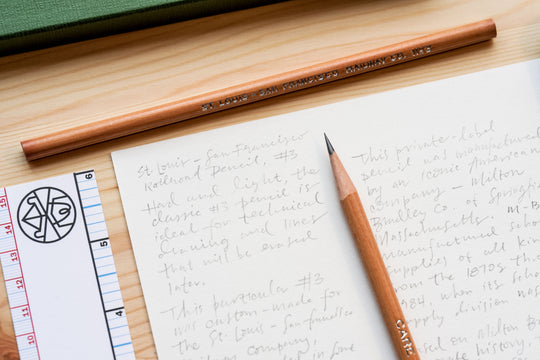 ST. LOUIS - SAN FRANCISCO RAILWAY CO. Nº3
St. Louis - San Francisco
Railroad Pencil, #3
Hard and light, the
classic #3 pencil is
ideal for technical
drawing and lines
that will be erased
later.
This particular #3
was custom-made for
the St. Louis - San Francisco
company,
This private-label
pencil was manufactured
by an iconic American
company - Milton
Bradley Co. of Springfie
Massachusetts. M-B
manufactured scho
supplies of all kin
from the 1870s th
1984, when its sch
supply division was
on Milton B
history,
15
14
13
12
11
10
6
5
4